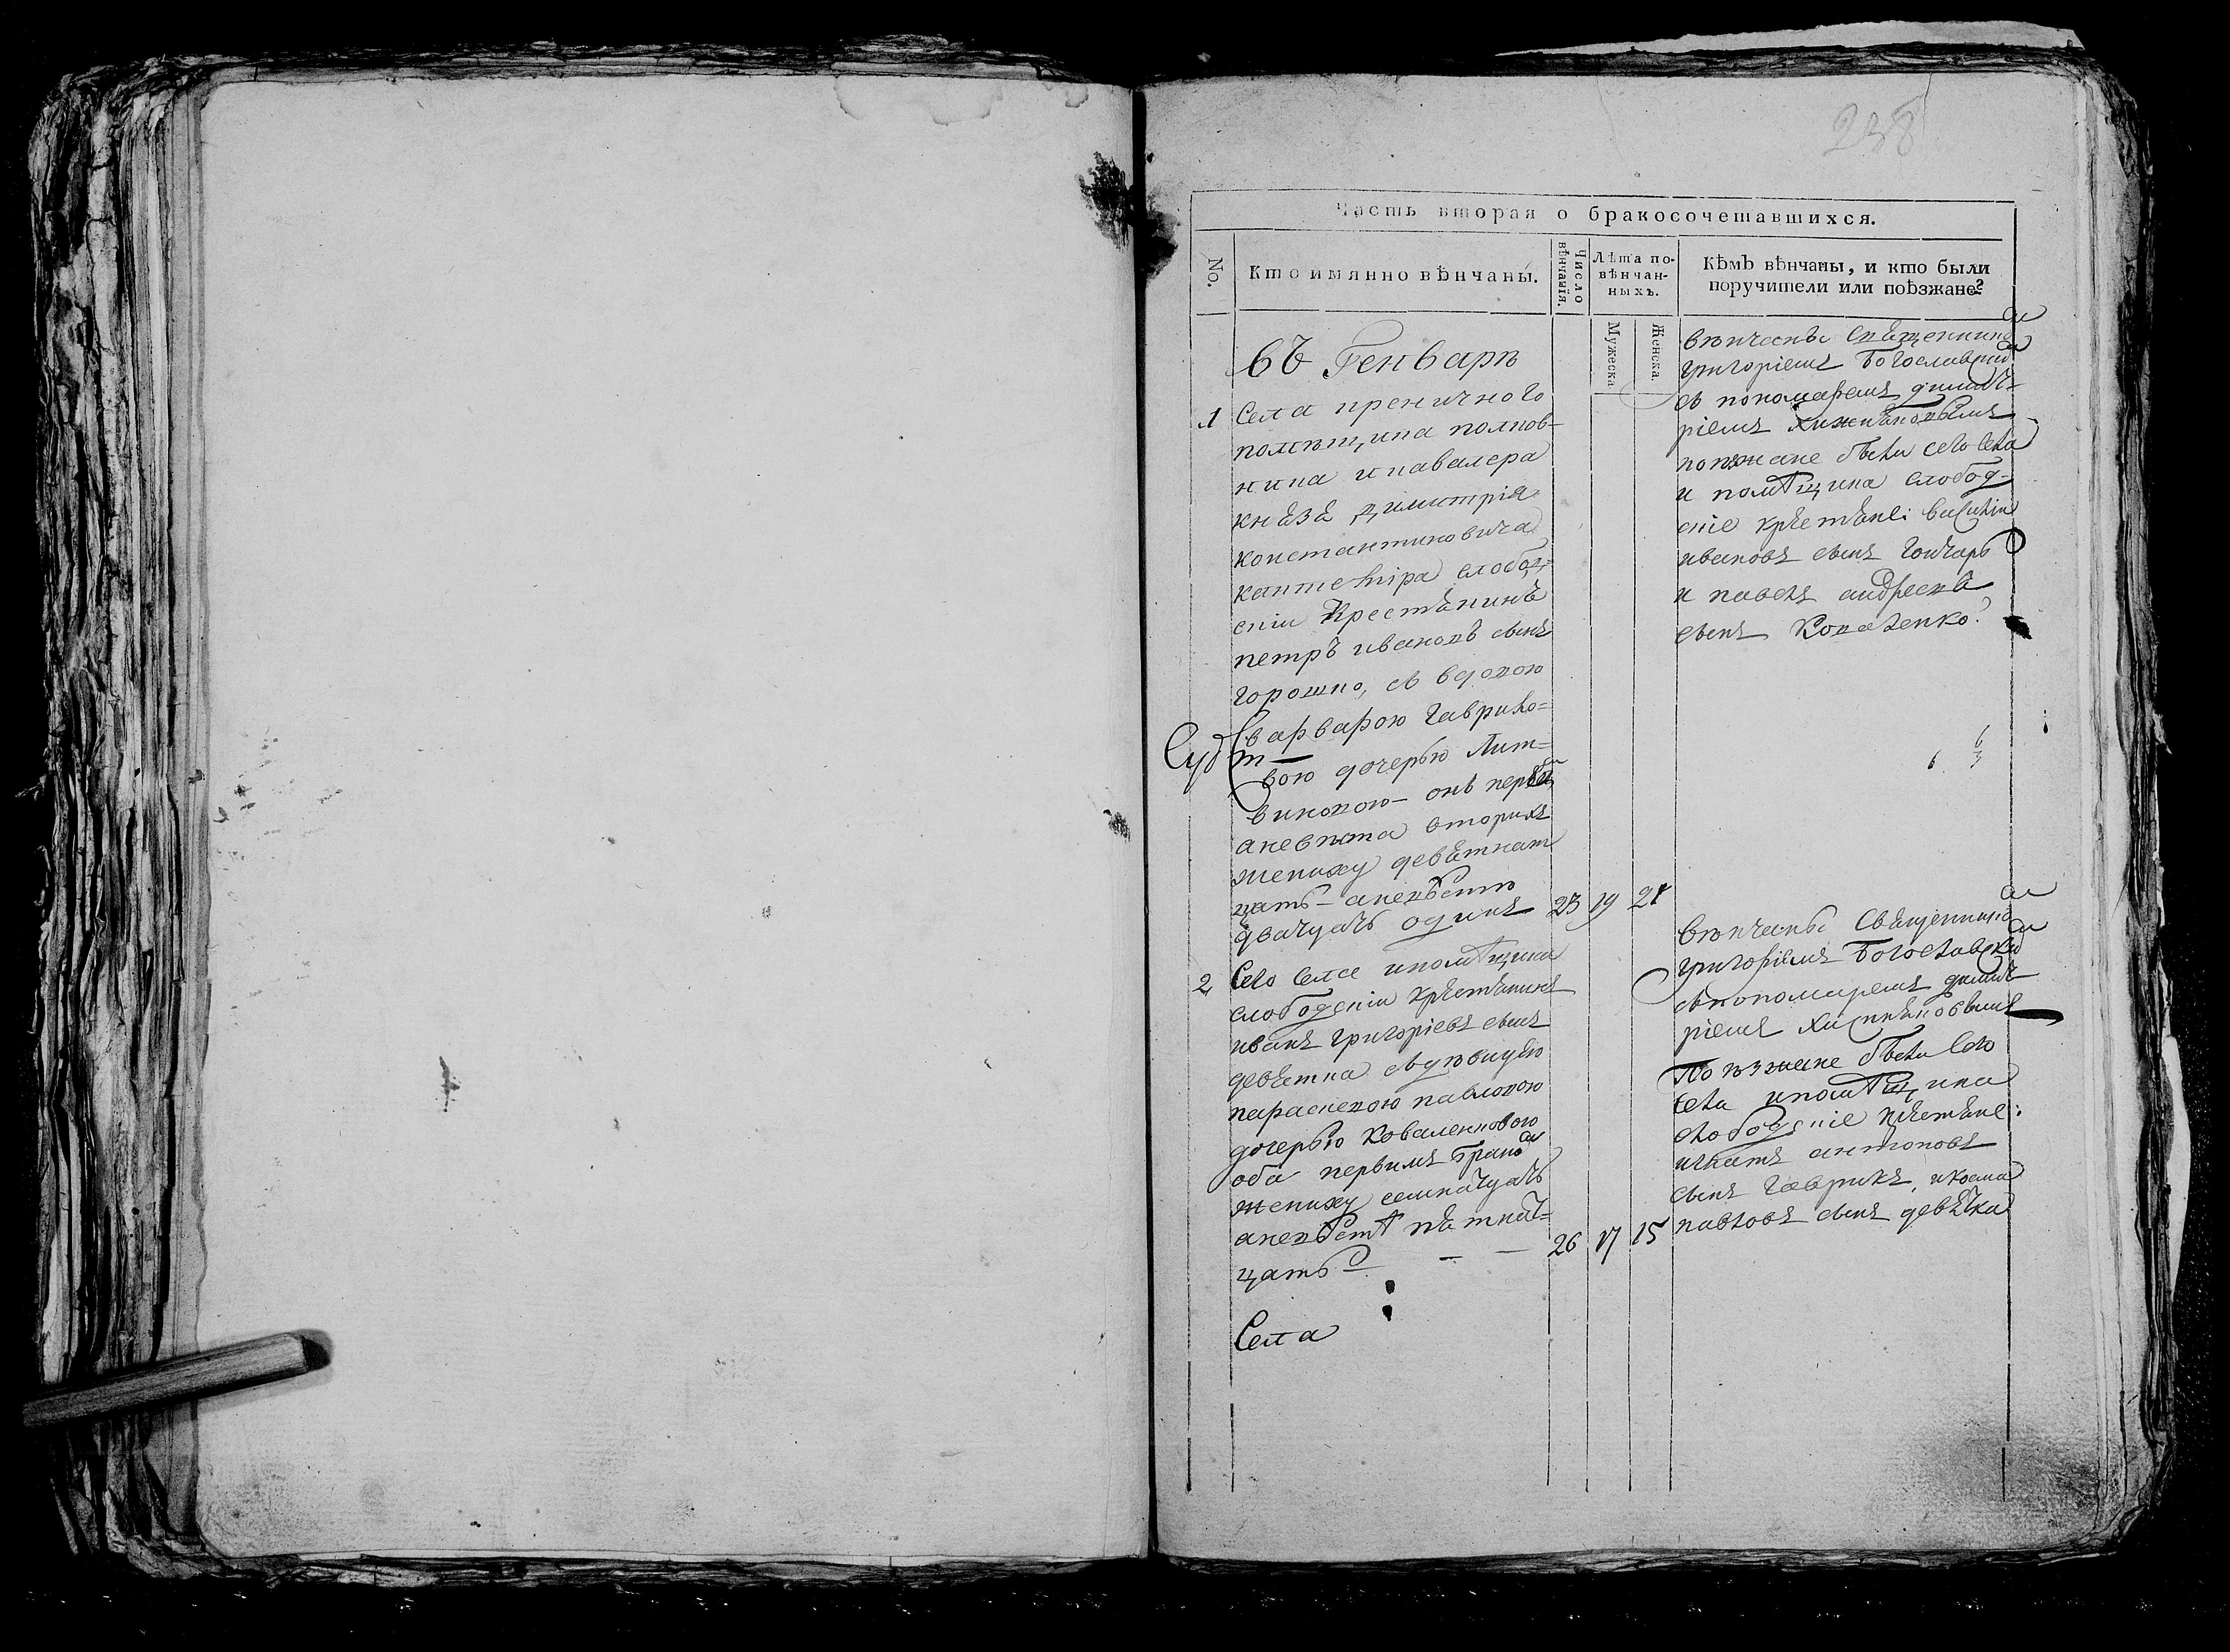 238
Часть вторая о бракосочетавшихся.
No.
Кто имянно вѣнчаны.
Число вѣнчанія.
Лѣта повѣнчанныхъ.
Мужеска.
Женска.
Кѣмъ вѣнчаны, и кто были
поручители или поѣзжане?
въ Генварѣ
1
Села
помѣщика полков-
ника и кавалера
кнѧзѧ димитрія
константиновича
кантеміра слобод-
скіи крестѧнинъ
петръ ивановъ сынъ
горошко, съ вдовою
варварою гаврило-
вою дочерью Лит-
виновою – онъ первы
а невѣста вторимъ
жениху девѧтнат
цать – а невѣстѣ
дватцать одинъ
23
19
21
вѣнчаны Свѧщенникомъ
григоріемъ Богославским
съ пономаремъ димит-
ріемъ
поѣзжане были сего села
и помѣщика слобод-
скіе крѣстѧне: василій
ивановъ сынъ гончарь
и павелъ андреевъ
сынъ Коваленко?
2
Сего села и помѣщика
слободскіи крѣстѧнинъ
иванъ григоріевъ сынъ
девѧтка съ дѣвицею
параскевою павловою
дочерью Коваленковою
оба первимъ бракомъ
жениху семнатцать
а невѣстѣ пѧтнат-
цать
26
17
15
вѣнчаны Свѧщенникомъ
григоріемъ Богославским
съ пономаремъ димит-
ріемъ
Поѣзжане были Сего
села и помѣщика
слободскіе крѣстѧне:
игнатъ антоновъ
сынъ гаврикъ, и козма
павловъ сынъ девѧтка
Села